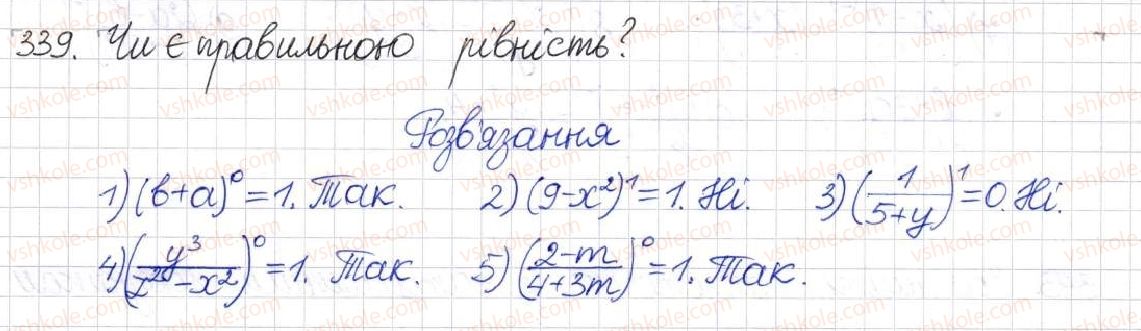 339. Чи є правильною рівність?
Розв'язання
1) (b+a)⁰=1. Так. 2) (9-x²)¹=1. Ні. 3) (1/(5+y))¹=0. Ні.
4) (y³/(z²⁰-x²))⁰=1. Так. 5) ((2-m)/(4+3m))⁰=1. Так.
vshkole.com